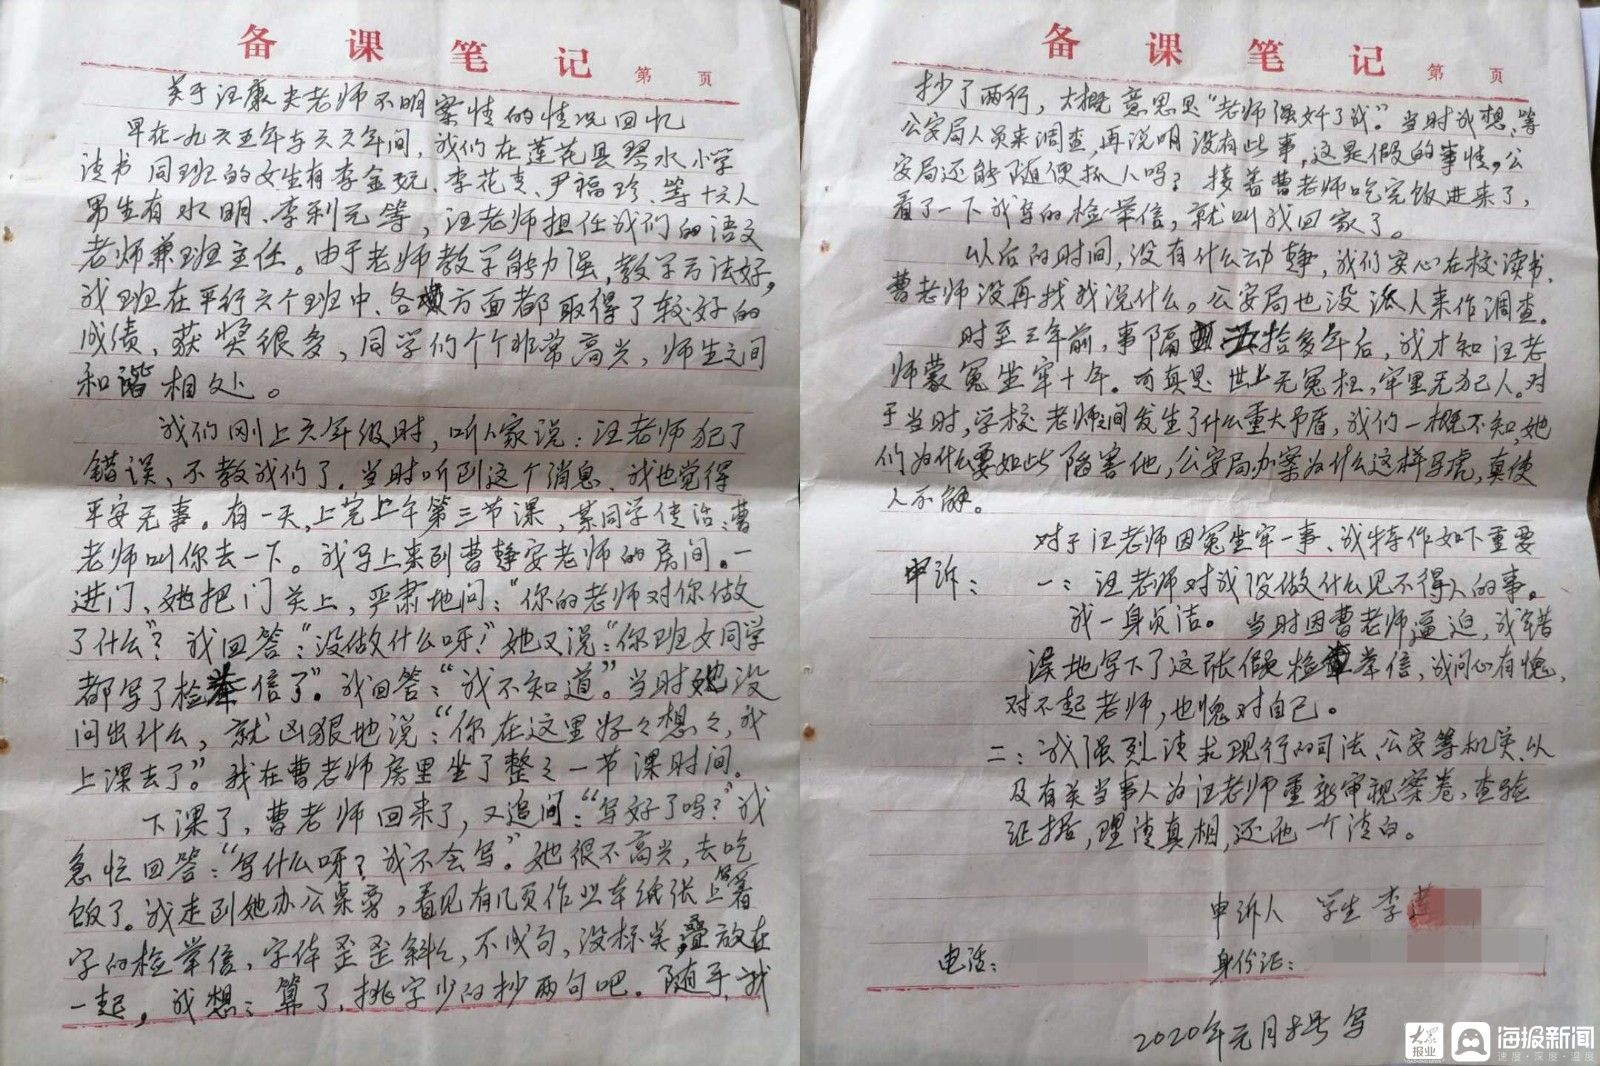 备课笔记
第 页
关于汪康夫老师不明案情的情况回忆
早在一九六五年与六六年间,我们在莲花县琴水小学
读书同班的女生有李金玩、李花支、尹福珍、等十六人
男生有水明、李利元等,汪老师担任我们的语文
老师兼班主任。由于老师教学能力强,教学方法好,
我班在平行六个班中、各方面都取得了较好的
成绩,获奖很多,同学们个个非常高兴,师生之间
和谐相处。
我们刚上六年级时,听人家说:汪老师犯了
错误,不教我们了。当时听到这个消息、我也觉得
平安无事。有一天,上完上午第三节课,某同学传话:曹
老师叫你去一下。我马上来到曹静安老师的房间。一
进门、她把门关上,严肃地问:“你的老师对你做
了什么”?我回答:“没做什么呀!”她又说:“你班女同学
都写了检举信了”。我回答:“我不知道”。当时她没
问出什么,就凶狠地说:“你在这里好々想々,我
上课去了”。我在曹老师房里坐了整々一节课时间。
下课了,曹老师回来了,又追问:“写好了吗?”我
急忙回答:“写什么呀?我不会写。”她很不高兴,去吃
饭了。我走到她办公桌旁,看见有几页作业本纸张上署着
字的检举信,字体歪歪斜々,不成句,没标点,叠放在
一起,我想:算了,挑字少的抄两句吧。随手,我
备课笔记
第 页
抄了两行,大概意思是“老师强奸了我”。当时我想、等
公安局人员来调查,再说明没有些事,这是假的事情。公
安局还能随便抓人吗?接着曹老师吃完饭进来了,
看了一下我写的检举信,就叫我回家了。
以后的时间,没有什么动静,我们安心在校读书、
曹老师没再找我说什么。公安局也没派人来作调查。
时至三年前,事隔五拾多年后,我才知汪老
师蒙冤坐牢十年。可真是世上无冤枉,牢里无犯人。对
于当时,学校老师之间发生了什么重大矛盾,我们一概不知,她
们为什么要如此陷害他,公安局办案为什么这样马虎,真使
人不解。
对于汪老师因冤坐牢一事、我特作如下重要
申诉: 一:汪老师对我没做什么见不得人的事。
我一身贞洁。当时因曹老师逼迫,我错
误地写下了这张假检举信,我问心有愧,
对不起老师,也愧对自己。
二:我强烈请求现行的司法、公安等机关、以
及有关当事人为汪老师重新审视案卷、查验
证据,理清真相,还他一个清白。
申诉人 学生 李莲
电话: 身份证:
2020年元月8号写
大众报业 海报新闻
速度·深度·温度